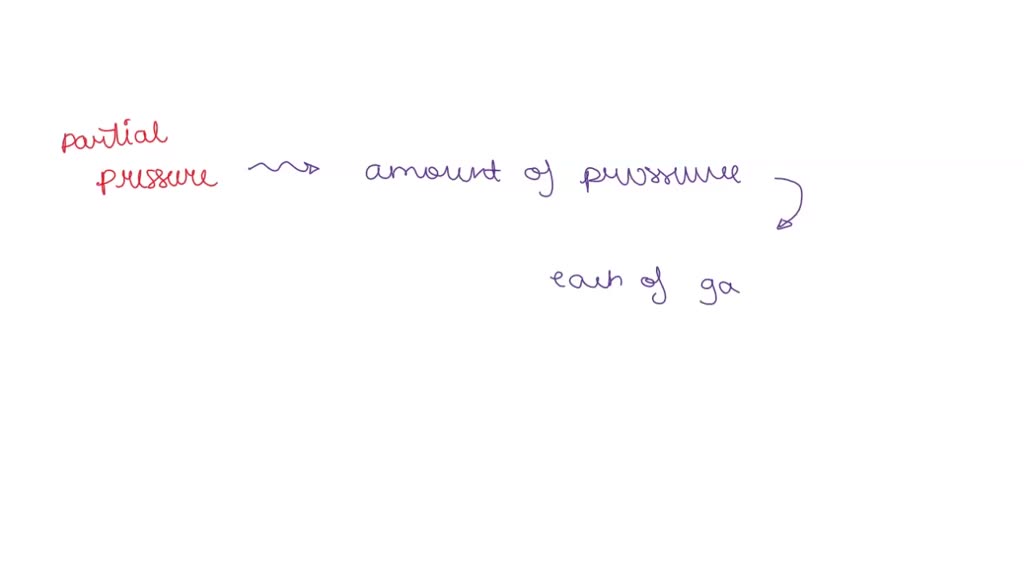 partial
pressure amount of pressure
each of ga